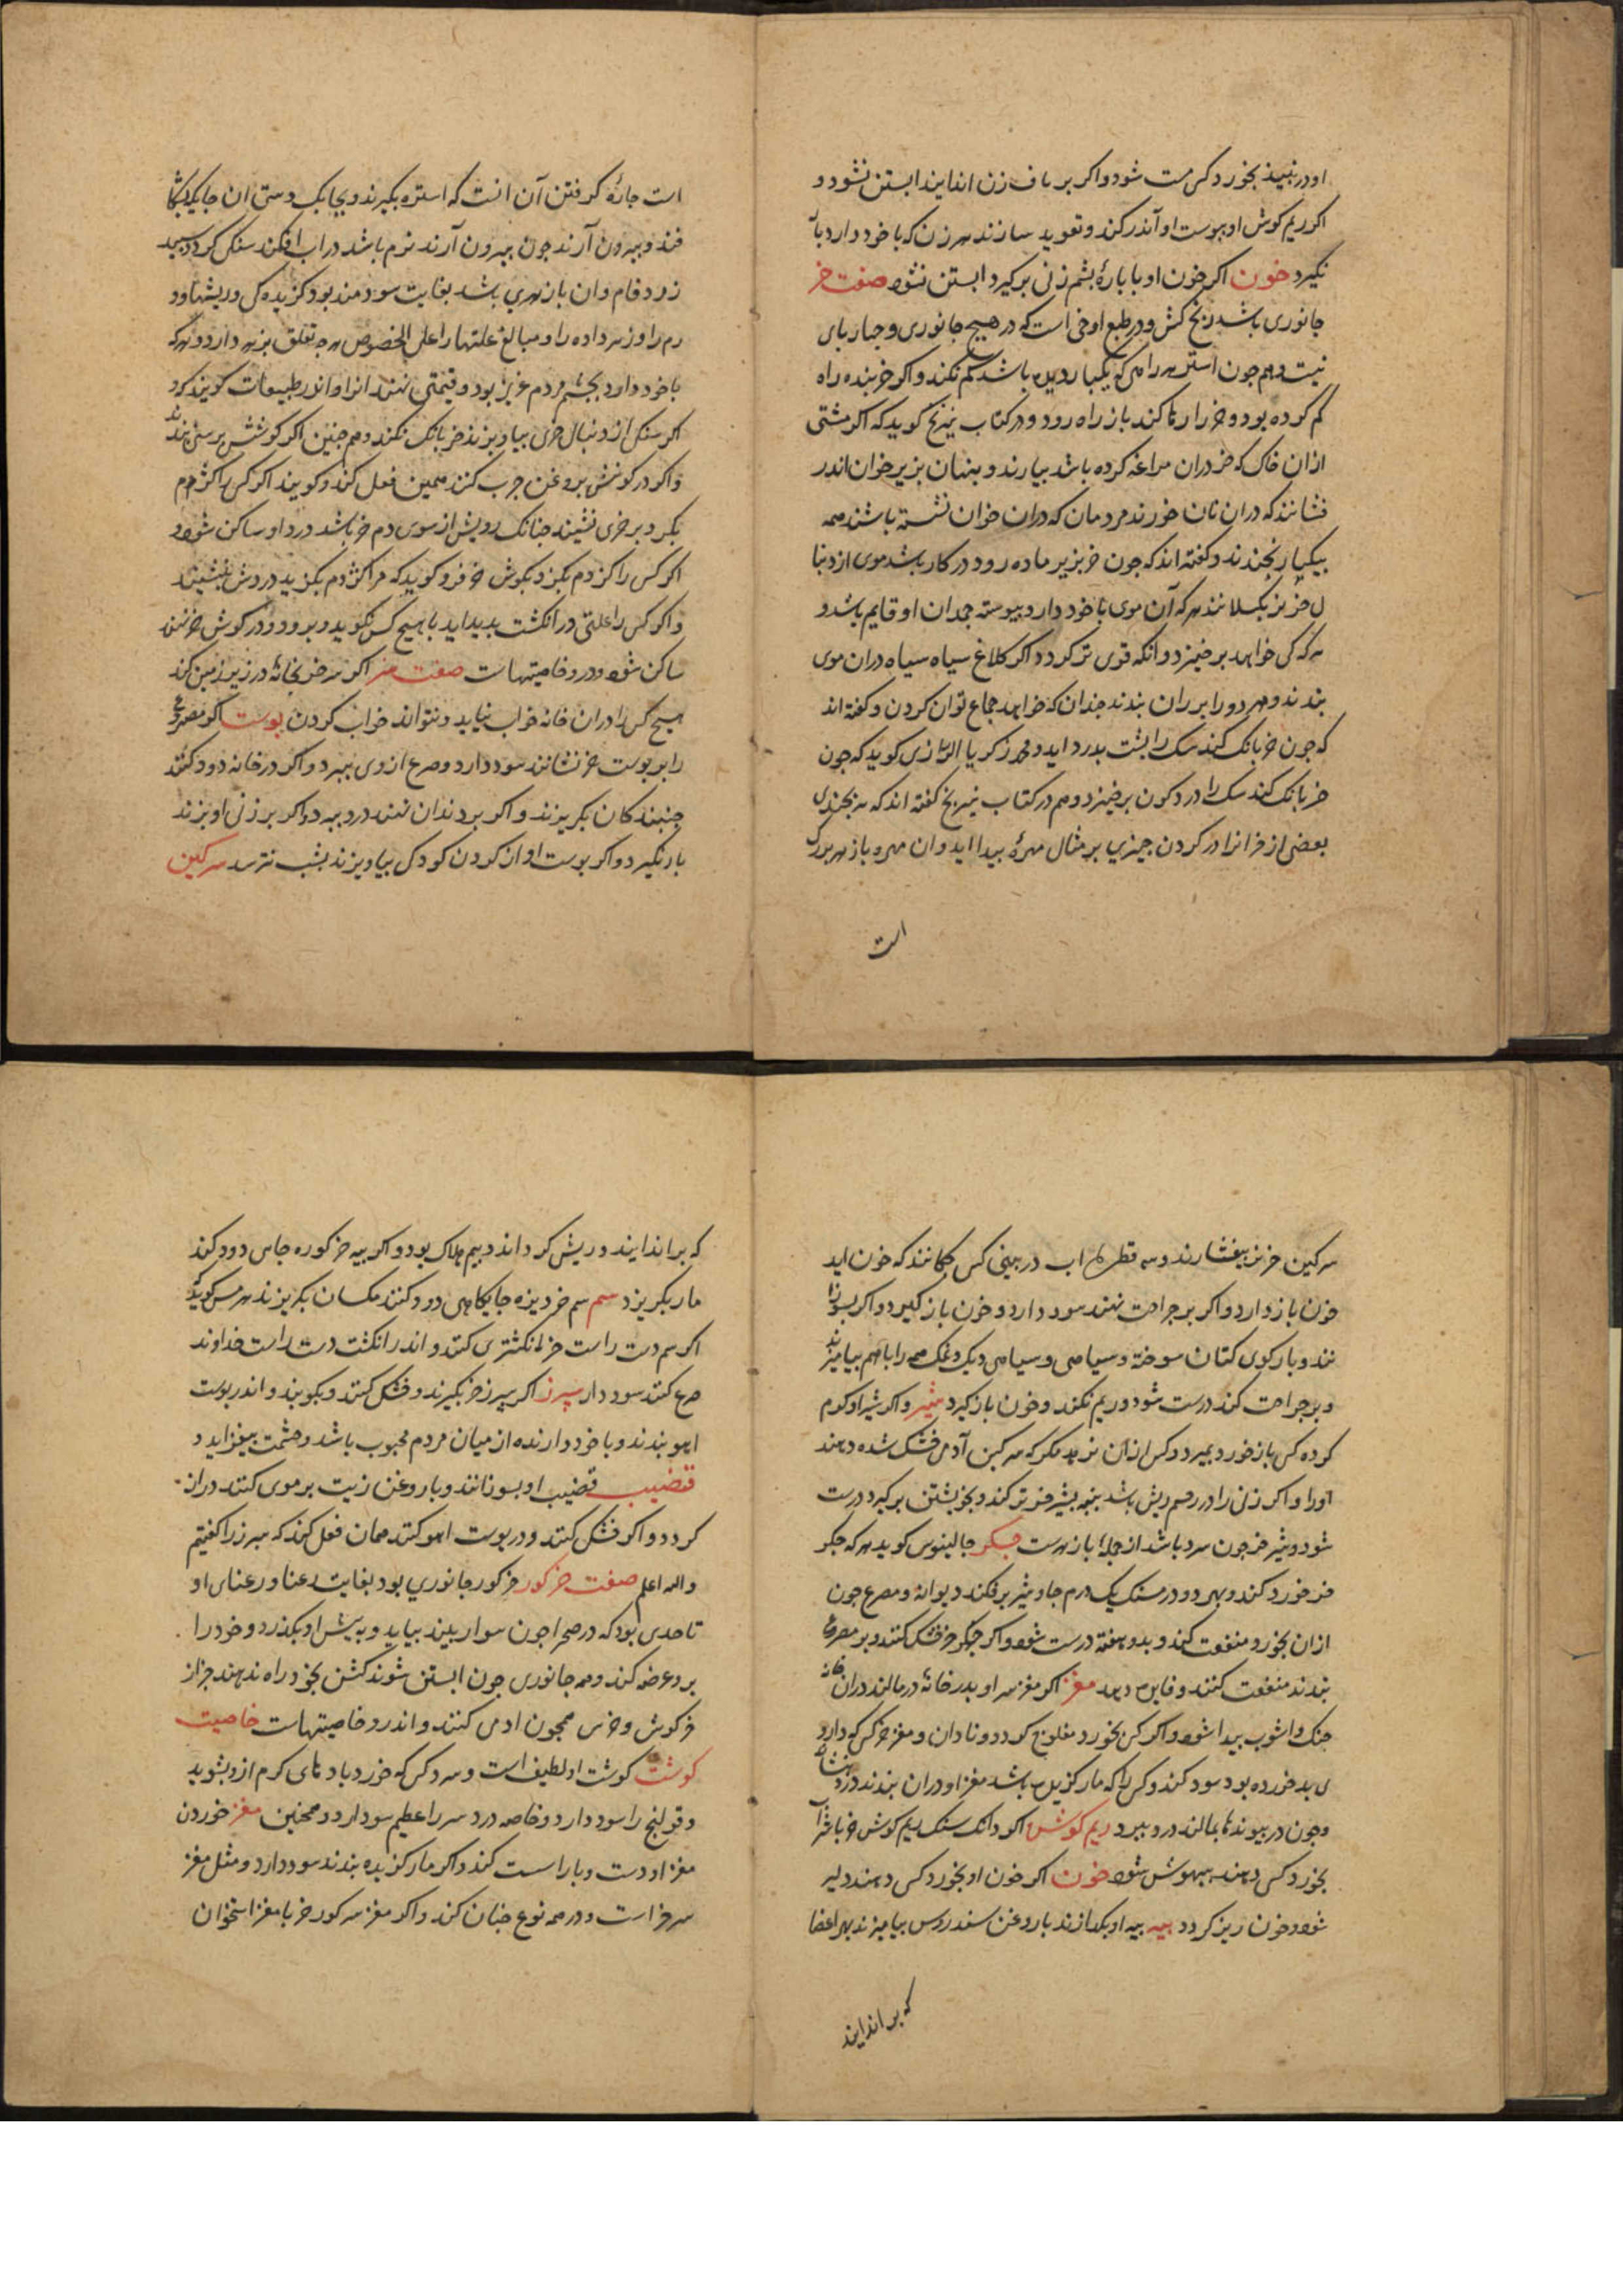 او در نبیذ بخورد کسی مست شود و اکر بر ناف زن انداید ابستن نشود و
اکر ریم کوش او بپوست او اندر کند و تعوید سازند هر زن که با خود دارد بار
نکیرد خون اکر خون او با پارهٔ پشم زنی برکیرد ابستن نشود صفت خر
جانوری باشد رنج کش و در طبع او خی است که در هیچ جانوری و جبار پای
نیست و هم جون استر هر راهی که یکبار دیده باشد کم نکند و اکر خربنده راه
کم کرده بود و خر را رها کند باز راه رود و در کتاب نیرنج کوید که اکر مشتی
ازان خاک که خر دران مراغه کرده باشد بیارند و پنهان بزیر خوان اندر
فشانند که دران نان خورند مردمان که دران خوان نشسته باشند همه
بیکبار بخندند و کفته اند که جون خر بزیر ماده رود در کار باشد موی از دنبا
ل خر نر بکسلانند هر که آن موی با خود دارد پیوسته جمدان او قایم باشد و
هر که کی خواهد برخیزد و انکه قوی تر کردد اکر کلاغ سیاه سیاه دران موی
بندند و هر دو را بر ران بندند جندان که خواهد جماع توان کردن و کفته اند
که جون خر بانک کند سک را پشت بدرد اید و محمد زکریا الرازی کوید که جون
خر بانک کند سک را درد کون برخیزد و هم در کتاب نیرنج کفته اند که بر بجندی
بعضی از خرانرا در کردن جیزی بر مثال مهرهٔ پیدا اید و ان مهره بازهر بزرک
است
است جارهٔ کرفتن آن انست که استره بکیرند و بجابک دستی ان جایکه بشکا
فند و بیرون آرند جون بیرون آرند نرم باشد در اب افکند سنکی کردد سپید
زرد فام و ان بازهری باشد بغایت سودمند بود کزیده کی و ریشها و و
رم را و زهر داده را و مبالغ علتها را علی الخصوص هرجه تعلق بزهر دارد و هر که
با خود دارد بجشم مردم عزیز بود و قیمتی نهند انرا و اندر طبیعات کویند کی
اکر سنکی از دنبال خری بیاویزند خر بانک نکند و هم جنین اکر کوشش برسنی بندند
و اکر در کونش بروغن جرب کنند همین فعل کند و کویند اکر کسی را کژدم
بکزد بر خری نشیند جنانک رویش از سوی دم خر باشد درد او ساکن شود و
اکر کسی را کژدم بکزد بکوش خر فرو کوید که مرا کژدم بکزید دردش بنشیند
و اکر کسی را علتی در انکشت پدید اید با هیچ کس نکوید و برود و در کوش خر نهند
ساکن شود و در و خاصیتهاست صفت سر اکر سر خر بخانهٔ در زیر زمین کنند
هیچ کس را دران خانه خواب نیاید و نتواند خواب کردن پوست اکر مصروع
را بر پوست خر نشانند سود دارد و صرع از وی ببرد و اکر در خانه دود کنند
جنبندکان بکریزند و اکر بر دندان نهند درد ببرد و اکر بر زنی اویزند
بار نکیرد و اکر پوست او از کردن کودکی بیاویزند بشب نترسد سرکین
سرکین خر نر بیفشارند و سه قطره اب در بینی کسی چکانند که خون اید
خون باز دارد و اکر بر جراحت نهند سود دارد و خون باز کیرد و اکر بسوزا
نند و بار کوی کتان سوخته و سیاهی و سیاهی دیک و نمک همه را با هم بیامیزند
و بر جراحت کند درست شود و ریم نکند و خون باز کیرد شیر و اکر شیر او کرم
کرده کسی باز خورد بمیرد و کس ازان نرهد مکر که سرکین آدمی خشک شده دهند
اورا و اکر زنی را در رحم ریش باشد پنبه بشیر خر تر کند و بخویشتن برکیرد درست
شود و شیر خر جون سرد باشد از جمله بازهرست جکر جالینوس کوید هر که جکر
خر خورد کند و بهر دو درمسنک یک درم جاوشیر برفکند دیوانه و مصروع جون
ازان بخورد منفعت کند و بدو هفته درست شود و اکر جکر خر خشک کنند و بر مصروع
بندند منفعت کند و فایده دهد مغز اکر مغز سر او بدر خانهٔ درمالند دران خانه
جنک و اشوب پیدا شود و اکر کسی بخورد مفلوج کردد و نادان و مغز خر کسی که دارو
ی بد خورده بود سود کند و کسی را که مار کزیده باشد مغز او دران بندند درد بنشاند
و جون در پیوندها بمالند درد ببرد ریم کوش اکر دانک سنک ریم کوش خر باشراب
بخورد کسی دهند بیهوش شود خون اکر خون او بخورد کسی دهند دلیر
شود و خون ریز کردد پیه پیه او بکدازند با روغن سندروس بیامیزند بهر اعضا
که براندایند
که براندایند و ریش کرداند و بیم هلاک بود و اکر پیه خر کوره جایی دود کند
مار بکریزد سم سم خر دیزه جایکاهی دود کنند مکسان بکریزند هرمس کوید
اکر سم دست راست خر انکشتری کنند و اندر انکشت دست راست خداوند
صرع کنند سود دارد سپرز اکر سپرز خر بکیرند و خشک کنند و بکوبند و اندر پوست
اهو بندند و با خود دارنده از میان مردم محبوب باشد و حشمت بیفزاید و
قضیب قضیب او بسوزانند و با روغن زیت بر موی کنند دراز
کردد و اکر خشک کنند و در پوست اهو کنند همان فعل کند که سپرز را کفتیم
والله اعلم صفت خر کور خر کور جانوری بود بغایت رعنا و رعنای او
تا حدی بود که در صحرا جون سوار بیند بیاید و به پیش او بکذرد و خود را
برو عرضه کند و همه جانوری جون ابستن شوند کشن بخود راه ندهند جز از
خرکوش و خرس همجون ادمی کنند و اندرو خاصیتهاست خاصیت
کوشت کوشت او لطیف است و هر کسی که خورد بادهای کرم ازو بشوید
و قولنج را سود دارد و خاصه درد سر را عظیم سود دارد و همجنین مغز خوردن
مغز او دست و پا راست کند و اکر مار کزیده بندند سود دارد و مثل مغز
سر خر است و در همه نوع جنان کند و اکر مغز سر کور خر با مغز استخوان